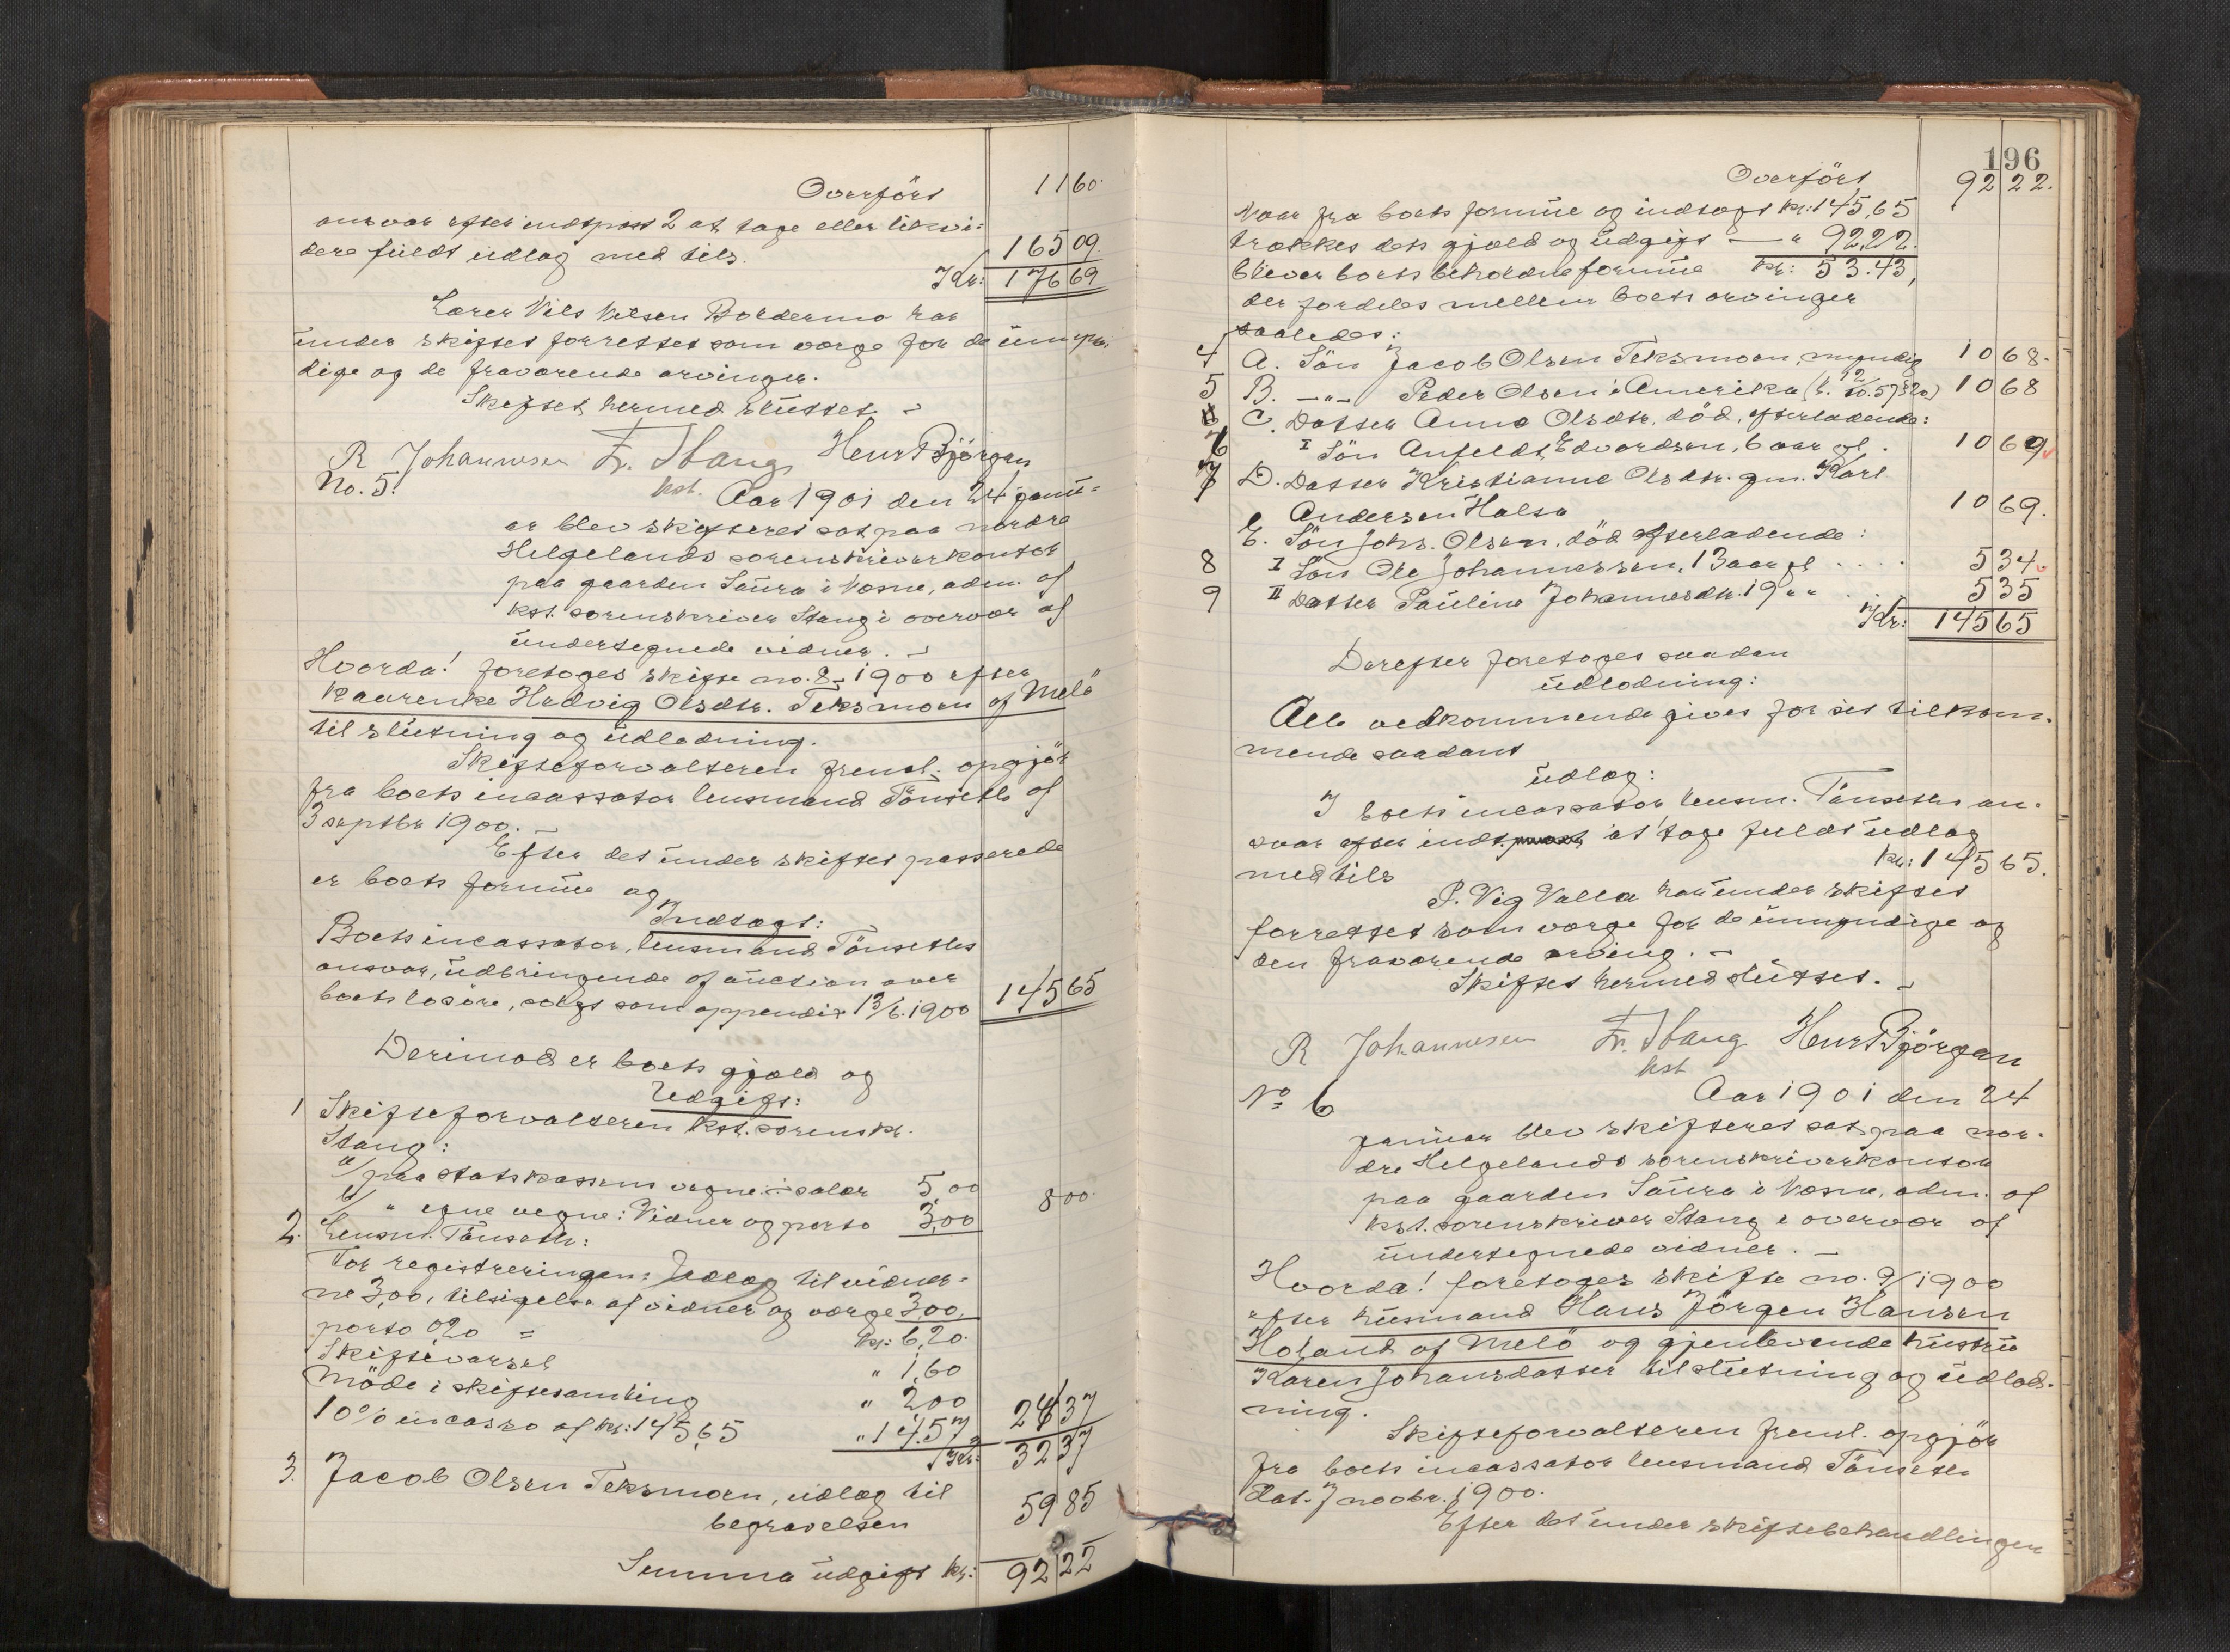 Overført 1160.
ansvar efter indtpost 2 at tage eller likvi-
dere fuldt udlag med tils. 165 09.
Kr: 176 69
Lærer Nils Nilsen Boldermo har
under skiftet forrettet som værge for de umyn-
dige og de fraværende arvinger.
Skiftet hermed sluttet. –
R Johannesen Fr. Stang Henr Bjørgan
kst.
No. 5. Aar 1901 den 24 janu-
ar blev skifteret sat paa nordre
Helgelands sorenskriverkontor
paa gaarden Saura i Nesne, adm. af
kst. sorenskriver Stang i overvær af
undertegnede vidner. –
Hvorda! foretoges skifte no. 8 - 1900 efter
Kaarenke Hedvig Olsdtr. Teksmoen af Melø
til slutning og udlodning.
Skifteforvalteren freml. opgjør
fra boets incassator lensmand Tønseth af
3 septbr 1900. –
Efter det under skiftet passerede
er boets formue og
Indtægt:
Boets incassator, lensmand Tønseths
ansvar, udbringende af auction over
boets løsøre, solgt som appendix 13/6.1900 145 65
Derimod er boets gjæld og
Udgift:
1 Skifteforvalteren kst. sorenskr.
Stang:
a/ paa statskassens vegne: salær 5,00
b/ " egne vegne: Vidner og porto 3,00 8 00.
2. Lensm. Tønseth:
For registreringen: Udlæg til vidner-
ne 3,00, tilsigelse af vidner og værge 3,00,
porto 0,20 = kr: 6,20.
Skiftevarsel " 1,60
Møde i skiftesamling " 2,00
10% incasso af kr: 145,65 " 14,57 24 37
Kr: 32 37
3. Jacob Olsen Teksmoen, udlæg til
begravelsen 59 85
Summa udgift kr: 92 22
196
Overført 92 22.
Naar fra boets formue og indtægt kr: 145,65
trækkes dets gjæld og udgift — " 92,22.
bliver boets beholdne formue kr: 53.43,
der fordeles mellem boets arvinger
saaledes:
4 A. Søn Jacob Olsen Teksmoen, myndig 10 68.
5 B. –"– Peder Olsen i Amerika 10 68
C. Datter Anna Olsdtr. død, efterladende:
6 I Søn Anfeldt Edvardsen, 6 aar gl. 10 69
7 D. Datter Kristianne Olsdtr. gm. Karl
Andersen Halsa 10 69.
E. Søn Johs. Olsen, død efterladende:
8 I Søn Ole Johannessen, 13 aar gl. . . . 5 34
9 II Datter Pauline Johannesdtr. 19 " " . . 5 35
Kr: 145 65
Derefter foretoges saadan
udlodning:
Alle vedkommende gives for sit tilkom-
mende saadant
udlæg:
I boets incassator lensm. Tønseths an-
svar efter indt. at tage fuldt udlæg
med tils kr: 145 65.
P. Vig Valla har under skiftet
forrettet som værge for de umyndige og
den fraværende arving. –
Skiftet hermed sluttet. –
R Johannesen Fr. Stang Henr Bjørgan
kst
No 6 Aar 1901 den 24
januar blev skifteret sat paa nor-
dre Helgelands sorenskriverkontor
paa gaarden Saura i Nesne, adm. af
kst. sorenskriver Stang i overvær af
undertegnede vidner. –
Hvorda! foretoges skifte no. 9/1900
efter husmand Hans Jørgen Hansen
Holand af Melø og gjenlevende hustru
Karen Johansdatter til slutning og udlod-
ning.
Skifteforvalteren freml. opgjør
fra boets incassator lensmand Tønseth
dat. 7 novbr. 1900.
Efter det under skiftebehandlingen